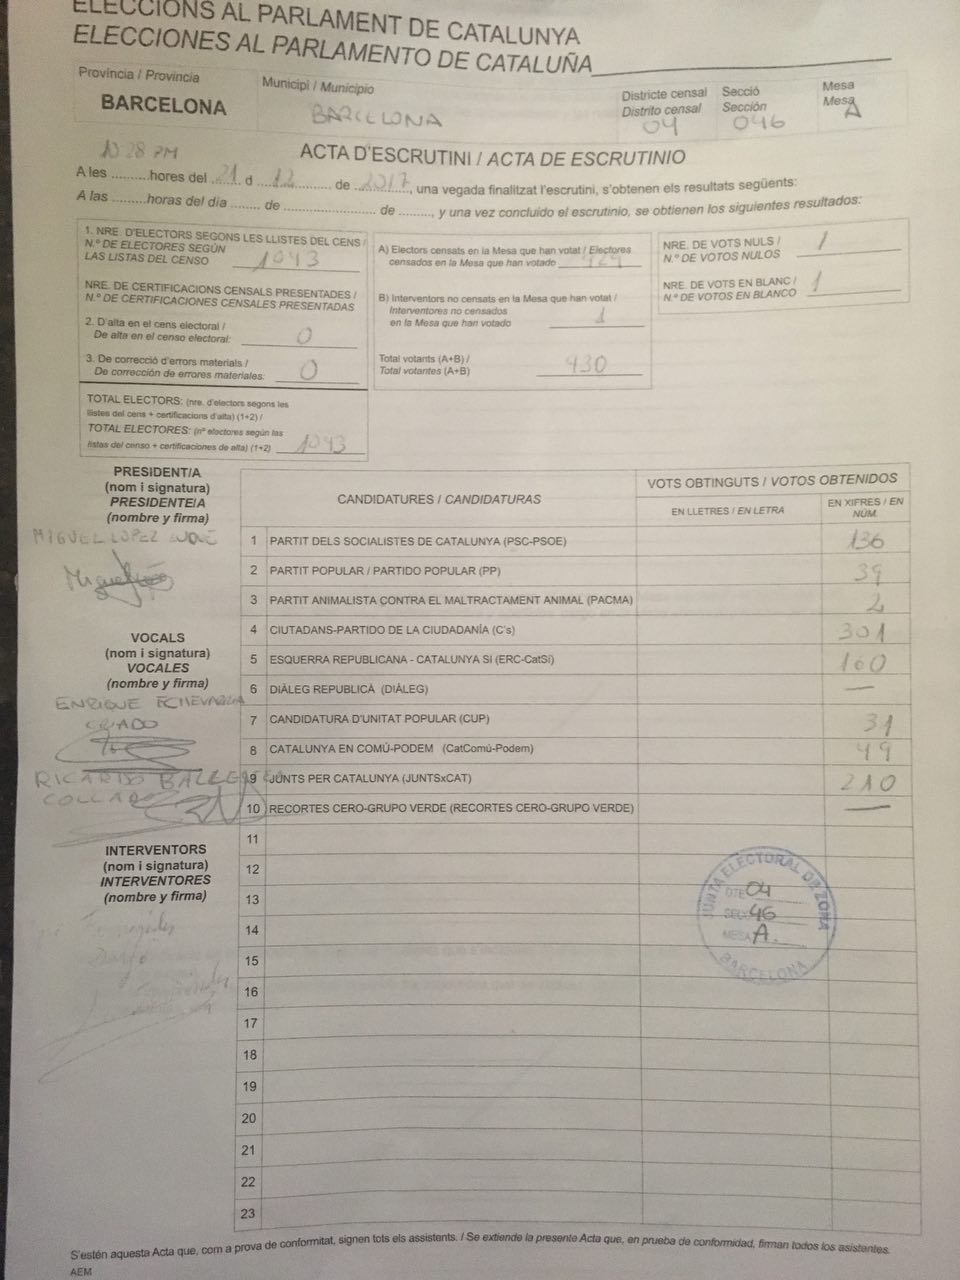 ELECCIONS AL PARLAMENT DE CATALUNYA
ELECCIONES AL PARLAMENTO DE CATALUÑA
Província / Provincia
BARCELONA
Municipi / Municipio
BARCELONA
Districte censal
Distrito censal
04
Secció
Sección
046
Mesa
Mesa
A
ACTA D'ESCRUTINI / ACTA DE ESCRUTINIO
10:28 PM
A les .........hores del 21 d 12 de 2017, una vegada finalitzat l'escrutini, s'obtenen els resultats següents:
A las .........horas del día ....... de ....................... de ........, y una vez concluido el escrutinio, se obtienen los siguientes resultados:
1. NRE. D'ELECTORS SEGONS LES LLISTES DEL CENS /
N.º DE ELECTORES SEGÚN
LAS LISTAS DEL CENSO 1043
NRE. DE CERTIFICACIONS CENSALS PRESENTADES /
N.º DE CERTIFICACIONES CENSALES PRESENTADAS
2. D'alta en el cens electoral /
De alta en el censo electoral: 0
3. De correcció d'errors materials /
De corrección de errores materiales: 0
TOTAL ELECTORS: (nre. d'electors segons les
llistes del cens + certificacions d'alta) (1+2) /
TOTAL ELECTORES: (nº electores según las
listas del censo + certificaciones de alta) (1+2) 1043
A) Electors censats en la Mesa que han votat / Electores
censados en la Mesa que han votado
B) Interventors no censats en la Mesa que han votat /
Interventores no censados
en la Mesa que han votado 1
Total votants (A+B) /
Total votantes (A+B) 930
NRE. DE VOTS NULS /
N.º DE VOTOS NULOS 1
NRE. DE VOTS EN BLANC /
N.º DE VOTOS EN BLANCO 1
PRESIDENT/A
(nom i signatura)
PRESIDENTE/A
(nombre y firma)
MIGUEL LOPEZ
VOCALS
(nom i signatura)
VOCALES
(nombre y firma)
ENRIQUE ECHEVARRIA
CRIADO
RICARDO
COLLADO
INTERVENTORS
(nom i signatura)
INTERVENTORES
(nombre y firma)
CANDIDATURES / CANDIDATURAS
VOTS OBTINGUTS / VOTOS OBTENIDOS
EN LLETRES / EN LETRA
EN XIFRES / EN
NÚM.
1 PARTIT DELS SOCIALISTES DE CATALUNYA (PSC-PSOE) 136
2 PARTIT POPULAR / PARTIDO POPULAR (PP) 39
3 PARTIT ANIMALISTA CONTRA EL MALTRACTAMENT ANIMAL (PACMA) 2
4 CIUTADANS-PARTIDO DE LA CIUDADANÍA (C's) 301
5 ESQUERRA REPUBLICANA - CATALUNYA SI (ERC-CatSí) 160
6 DIÀLEG REPUBLICÀ (DIÀLEG) —
7 CANDIDATURA D'UNITAT POPULAR (CUP) 31
8 CATALUNYA EN COMÚ-PODEM (CatComú-Podem) 49
9 JUNTS PER CATALUNYA (JUNTSxCAT) 210
10 RECORTES CERO-GRUPO VERDE (RECORTES CERO-GRUPO VERDE) —
11
12
13
14
15
16
17
18
19
20
21
22
23
JUNTA ELECTORAL DE ZONA
DTE 04
SEC 46
MESA A
BARCELONA
S'estén aquesta Acta que, com a prova de conformitat, signen tots els assistents. / Se extiende la presente Acta que, en prueba de conformidad, firman todos los asistentes.
AEM